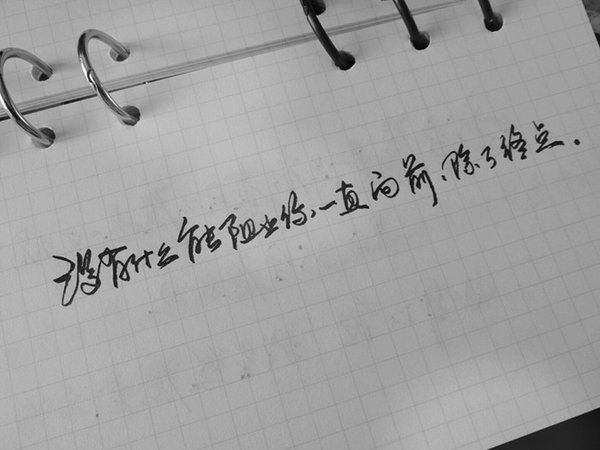 没有什么能阻止你、一直向前、除了终点.